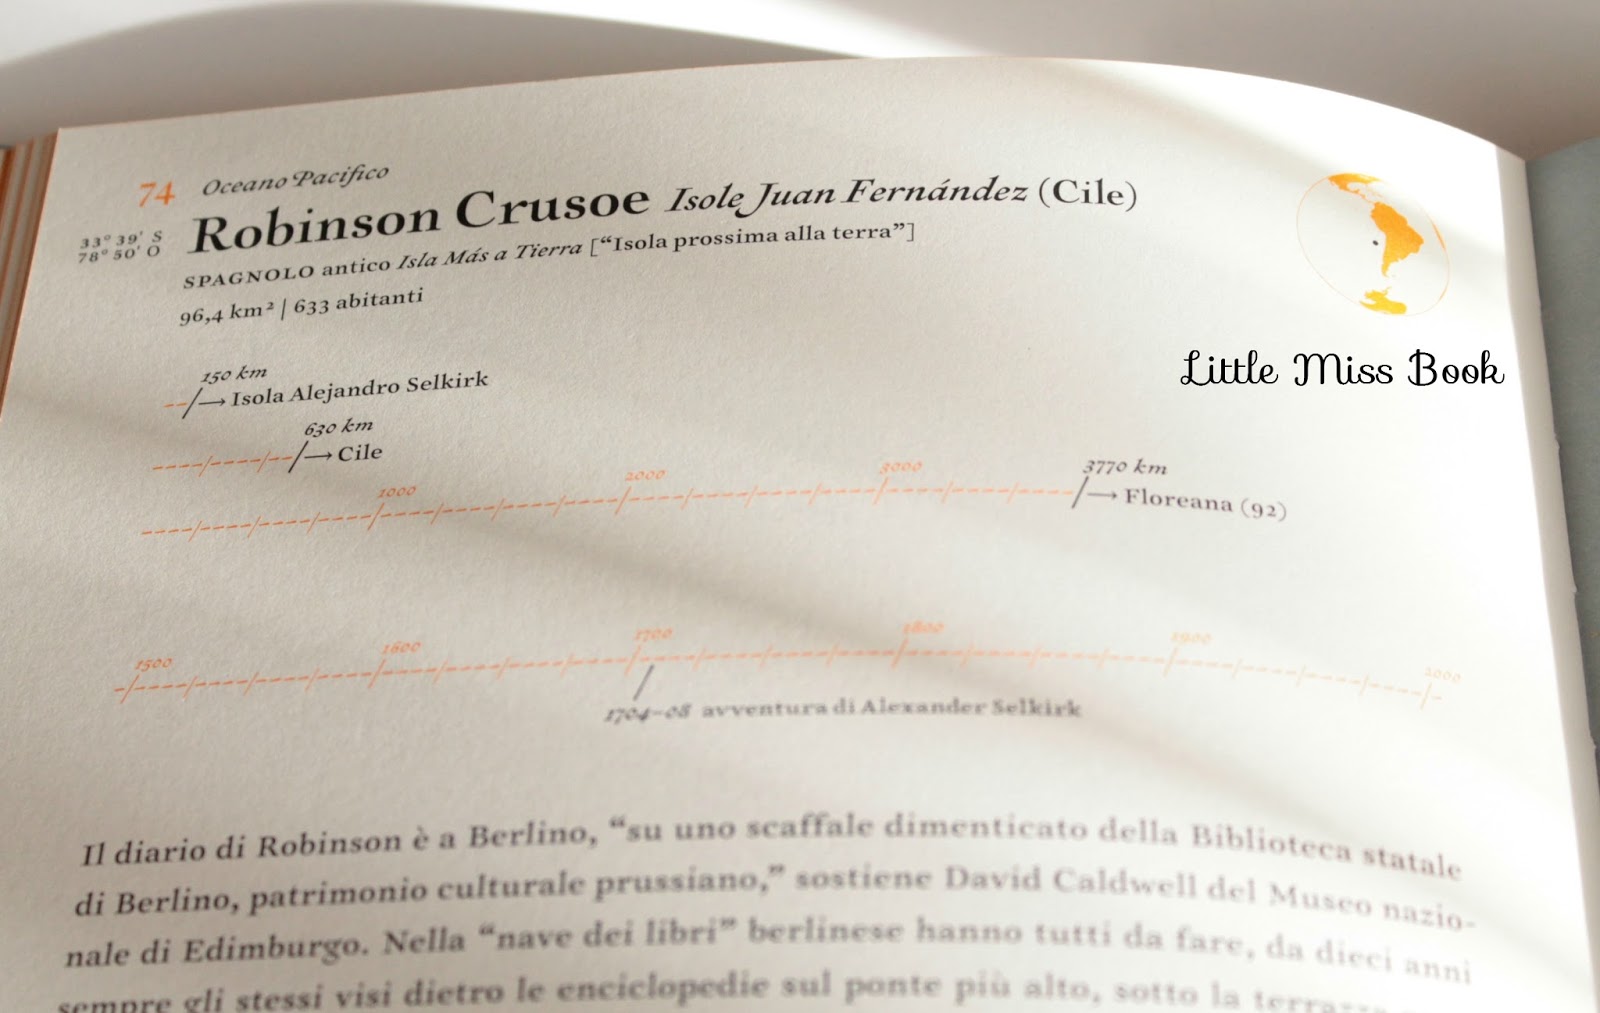 74 Oceano Pacifico
33° 39' S
78° 50' O
Robinson Crusoe Isole Juan Fernández (Cile)
SPAGNOLO antico Isla Más a Tierra [“Isola prossima alla terra”]
96,4 km² | 633 abitanti
Little Miss Book
150 km
→ Isola Alejandro Selkirk
630 km
→ Cile
1000 2000 3000 3770 km
→ Floreana (92)
1500 1600 1700 1800 1900 2000
1704–08 avventura di Alexander Selkirk
Il diario di Robinson è a Berlino, “su uno scaffale dimenticato della Biblioteca statale
di Berlino, patrimonio culturale prussiano,” sostiene David Caldwell del Museo nazio-
nale di Edimburgo. Nella “nave dei libri” berlinese hanno tutti da fare, da dieci anni
sempre gli stessi visi dietro le enciclopedie sul ponte più alto, sotto la